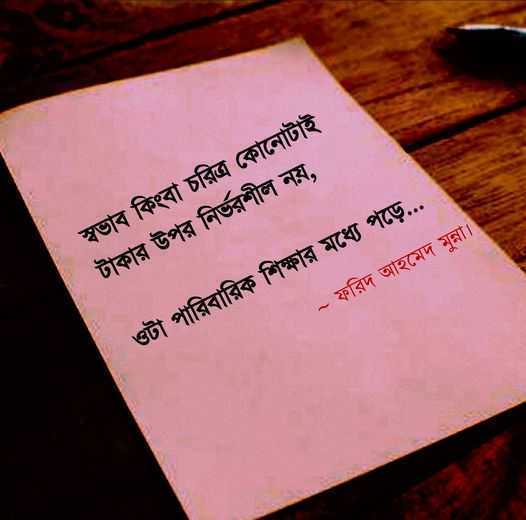 স্বভাব কিংবা চরিত্র কোনোটাই
টাকার উপর নির্ভরশীল নয়,
ওটা পারিবারিক শিক্ষার মধ্যে পড়ে...
~ ফরিদ আহমেদ মুন্না।